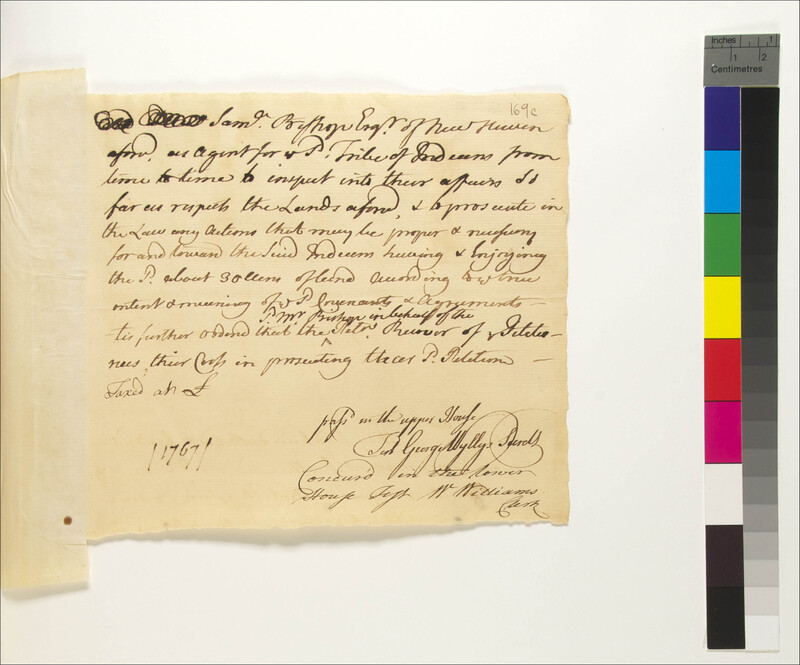 169c
Sam.r Bishop Esq.r of New Haven
afors.d as Agent for y.e s.d Tribe of Indians from
time to time to inspect into their affairs so
far as respects the Lands afores.d, & to prosecute in
the Law any Actions that may be proper & necessary
for and toward the Said Indians having & Enjoying
the s.d about 30 Acres of land according to y.e true
intent & meaning of y.e s.d Covenants & Agreements —
s.d Mr Bishop in behalf of the
tis further ordered that the Pet.rs Recover of y.e Petitio-
nees their Cost in prosecuting s.d Petition —
Taxed at £
pass.d in the upper House
Test George Wyllys Secret.y
|1767|
Concurd in the lower
House Test W.m Williams
Clerk
Inches 1
1 2
Centimetres